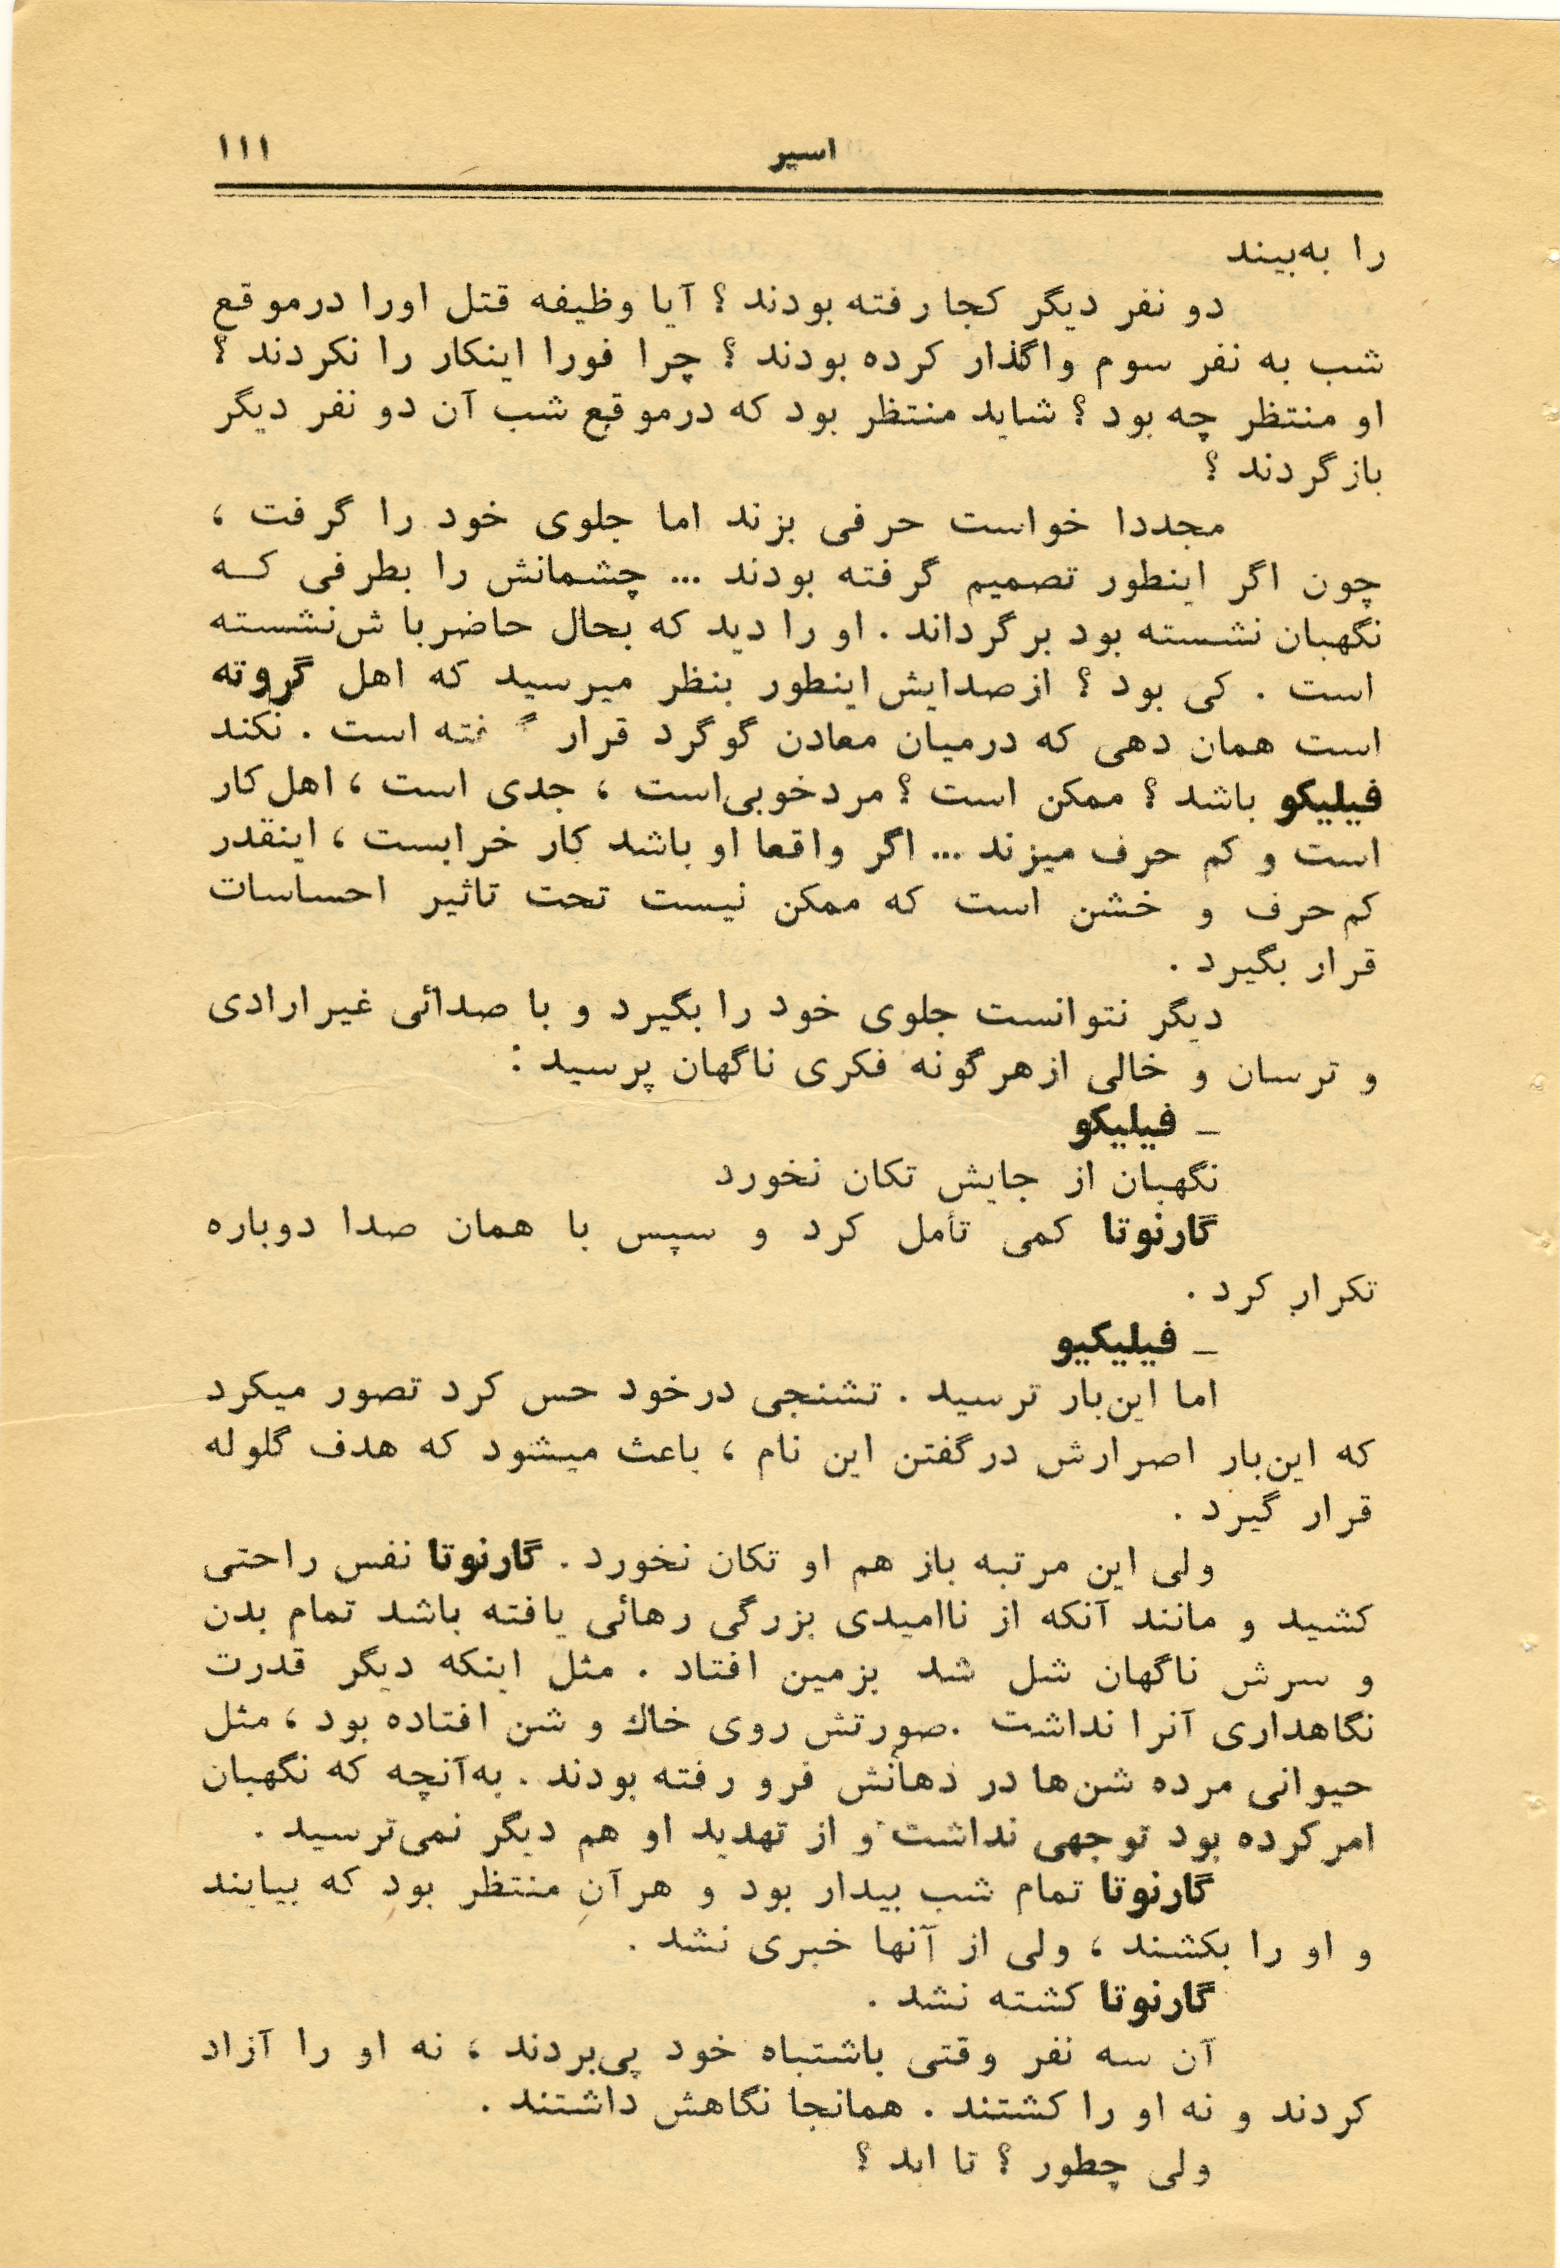 اسیر ۱۱۱
را به‌بیند
دو نفر دیگر کجا رفته بودند ؟ آیا وظیفه قتل اورا درموقع
شب به نفر سوم واگذار کرده بودند ؟ چرا فورا اینکار را نکردند ؟
او منتظر چه بود ؟ شاید منتظر بود که درموقع شب آن دو نفر دیگر
بازگردند ؟
مجددا خواست حرفی بزند اما جلوی خود را گرفت ،
چون اگر اینطور تصمیم گرفته بودند ... چشمانش را بطرفی که
نگهبان نشسته بود برگرداند . او را دید که بحال حاضرباش‌نشسته
است . کی بود ؟ ازصدایش اینطور بنظر میرسید که اهل گروته
است همان دهی که درمیان معادن گوگرد قرار گفته است . نکند
فیلیکو باشد ؟ ممکن است ؟ مردخوبی‌است ، جدی است ، اهل کار
است و کم حرف میزند ... اگر واقعا او باشد کار خرابست ، اینقدر
کم‌حرف و خشن است که ممکن نیست تحت تاثیر احساسات
قرار بگیرد .
دیگر نتوانست جلوی خود را بگیرد و با صدائی غیرارادی
و ترسان و خالی ازهرگونه فکری ناگهان پرسید :
– فیلیکو
نگهبان از جایش تکان نخورد
گارنوتا کمی تأمل کرد و سپس با همان صدا دوباره
تکرار کرد .
– فیلیکیو
اما این‌بار ترسید . تشنجی درخود حس کرد تصور میکرد
که این‌بار اصرارش درگفتن این نام ، باعث میشود که هدف گلوله
قرار گیرد .
ولی این مرتبه باز هم او تکان نخورد . گارنوتا نفس راحتی
کشید و مانند آنکه از ناامیدی بزرگی رهائی یافته باشد تمام بدن
و سرش ناگهان شل شد بزمین افتاد . مثل اینکه دیگر قدرت
نگاهداری آنرا نداشت .صورتش روی خاك و شن افتاده بود ، مثل
حیوانی مرده شن‌ها در دهانش فرو رفته بودند . به‌آنچه که نگهبان
امرکرده بود توجهی نداشت و از تهدید او هم دیگر نمی‌ترسید .
گارنوتا تمام شب بیدار بود و هرآن منتظر بود که بیایند
و او را بکشند ، ولی از آنها خبری نشد .
گارنوتا کشته نشد .
آن سه نفر وقتی باشتباه خود پی‌بردند ، نه او را آزاد
کردند و نه او را کشتند . همانجا نگاهش داشتند .
ولی چطور ؟ تا ابد ؟